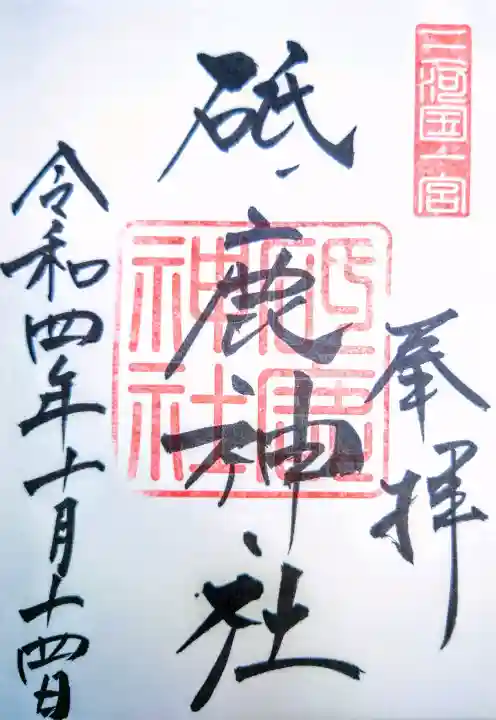 三河国一宮
奉拝
砥鹿神社
砥鹿神社
令和四年十月十四日